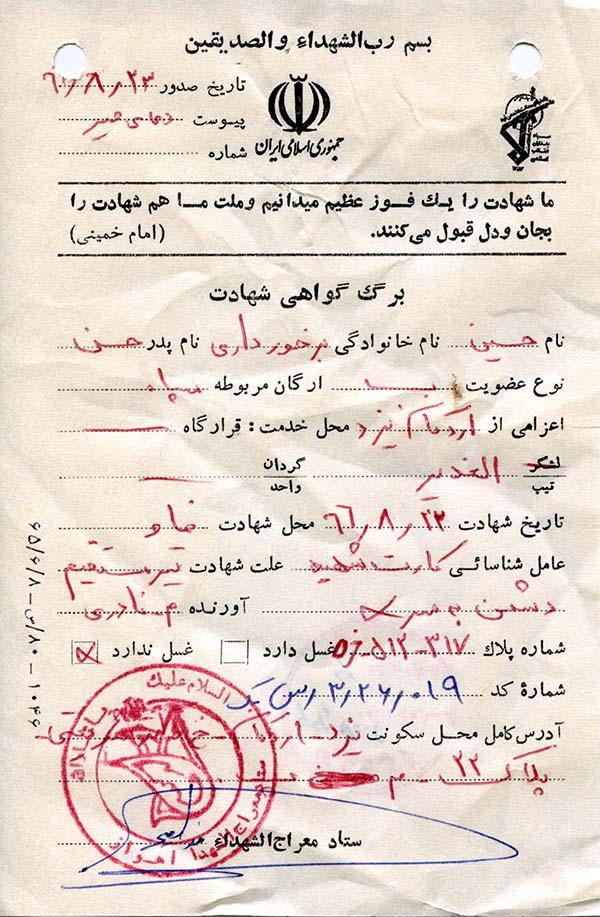 بسم رب الشهداء والصدیقین
تاریخ صدور ۶۶/۸/۲۳
پیوست
شماره
جمهوری اسلامی ایران
سپاه پاسداران انقلاب اسلامی
ما شهادت را یك فوز عظیم میدانیم وملت ما هم شهادت را
بجان ودل قبول می‌کنند. (امام خمینی)
برگ گواهی شهادت
نام حسین نام خانوادگی برخورداری نام پدر حسن
نوع عضویت ارگان مربوطه سپاه
اعزامی از اردکان یزد محل خدمت: قرارگاه
لشگر
تیپ
الغدیر
گردان
واحد
تاریخ شهادت ۶۶/۸/۲۲ محل شهادت
عامل شناسائی کارت شهید علت شهادت تیر مستقیم
دشمن به سر آورنده م نادری
شماره پلاك ۳۱۷-۵۱۲ غسل دارد غسل ندارد
شمارهٔ کد ۳/۲۶/۰۱۹
آدرس کامل محل سکونت یزد - اردکان
پلاک ۲۲
ستاد معراج الشهداء
السلام علیك
۱۰۴۶ - ۸۰/س - ۶۵/۶/۸